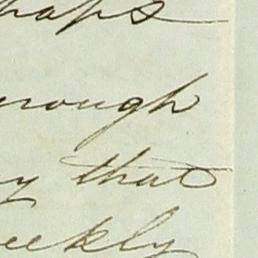 haps
rough
y that
eekly